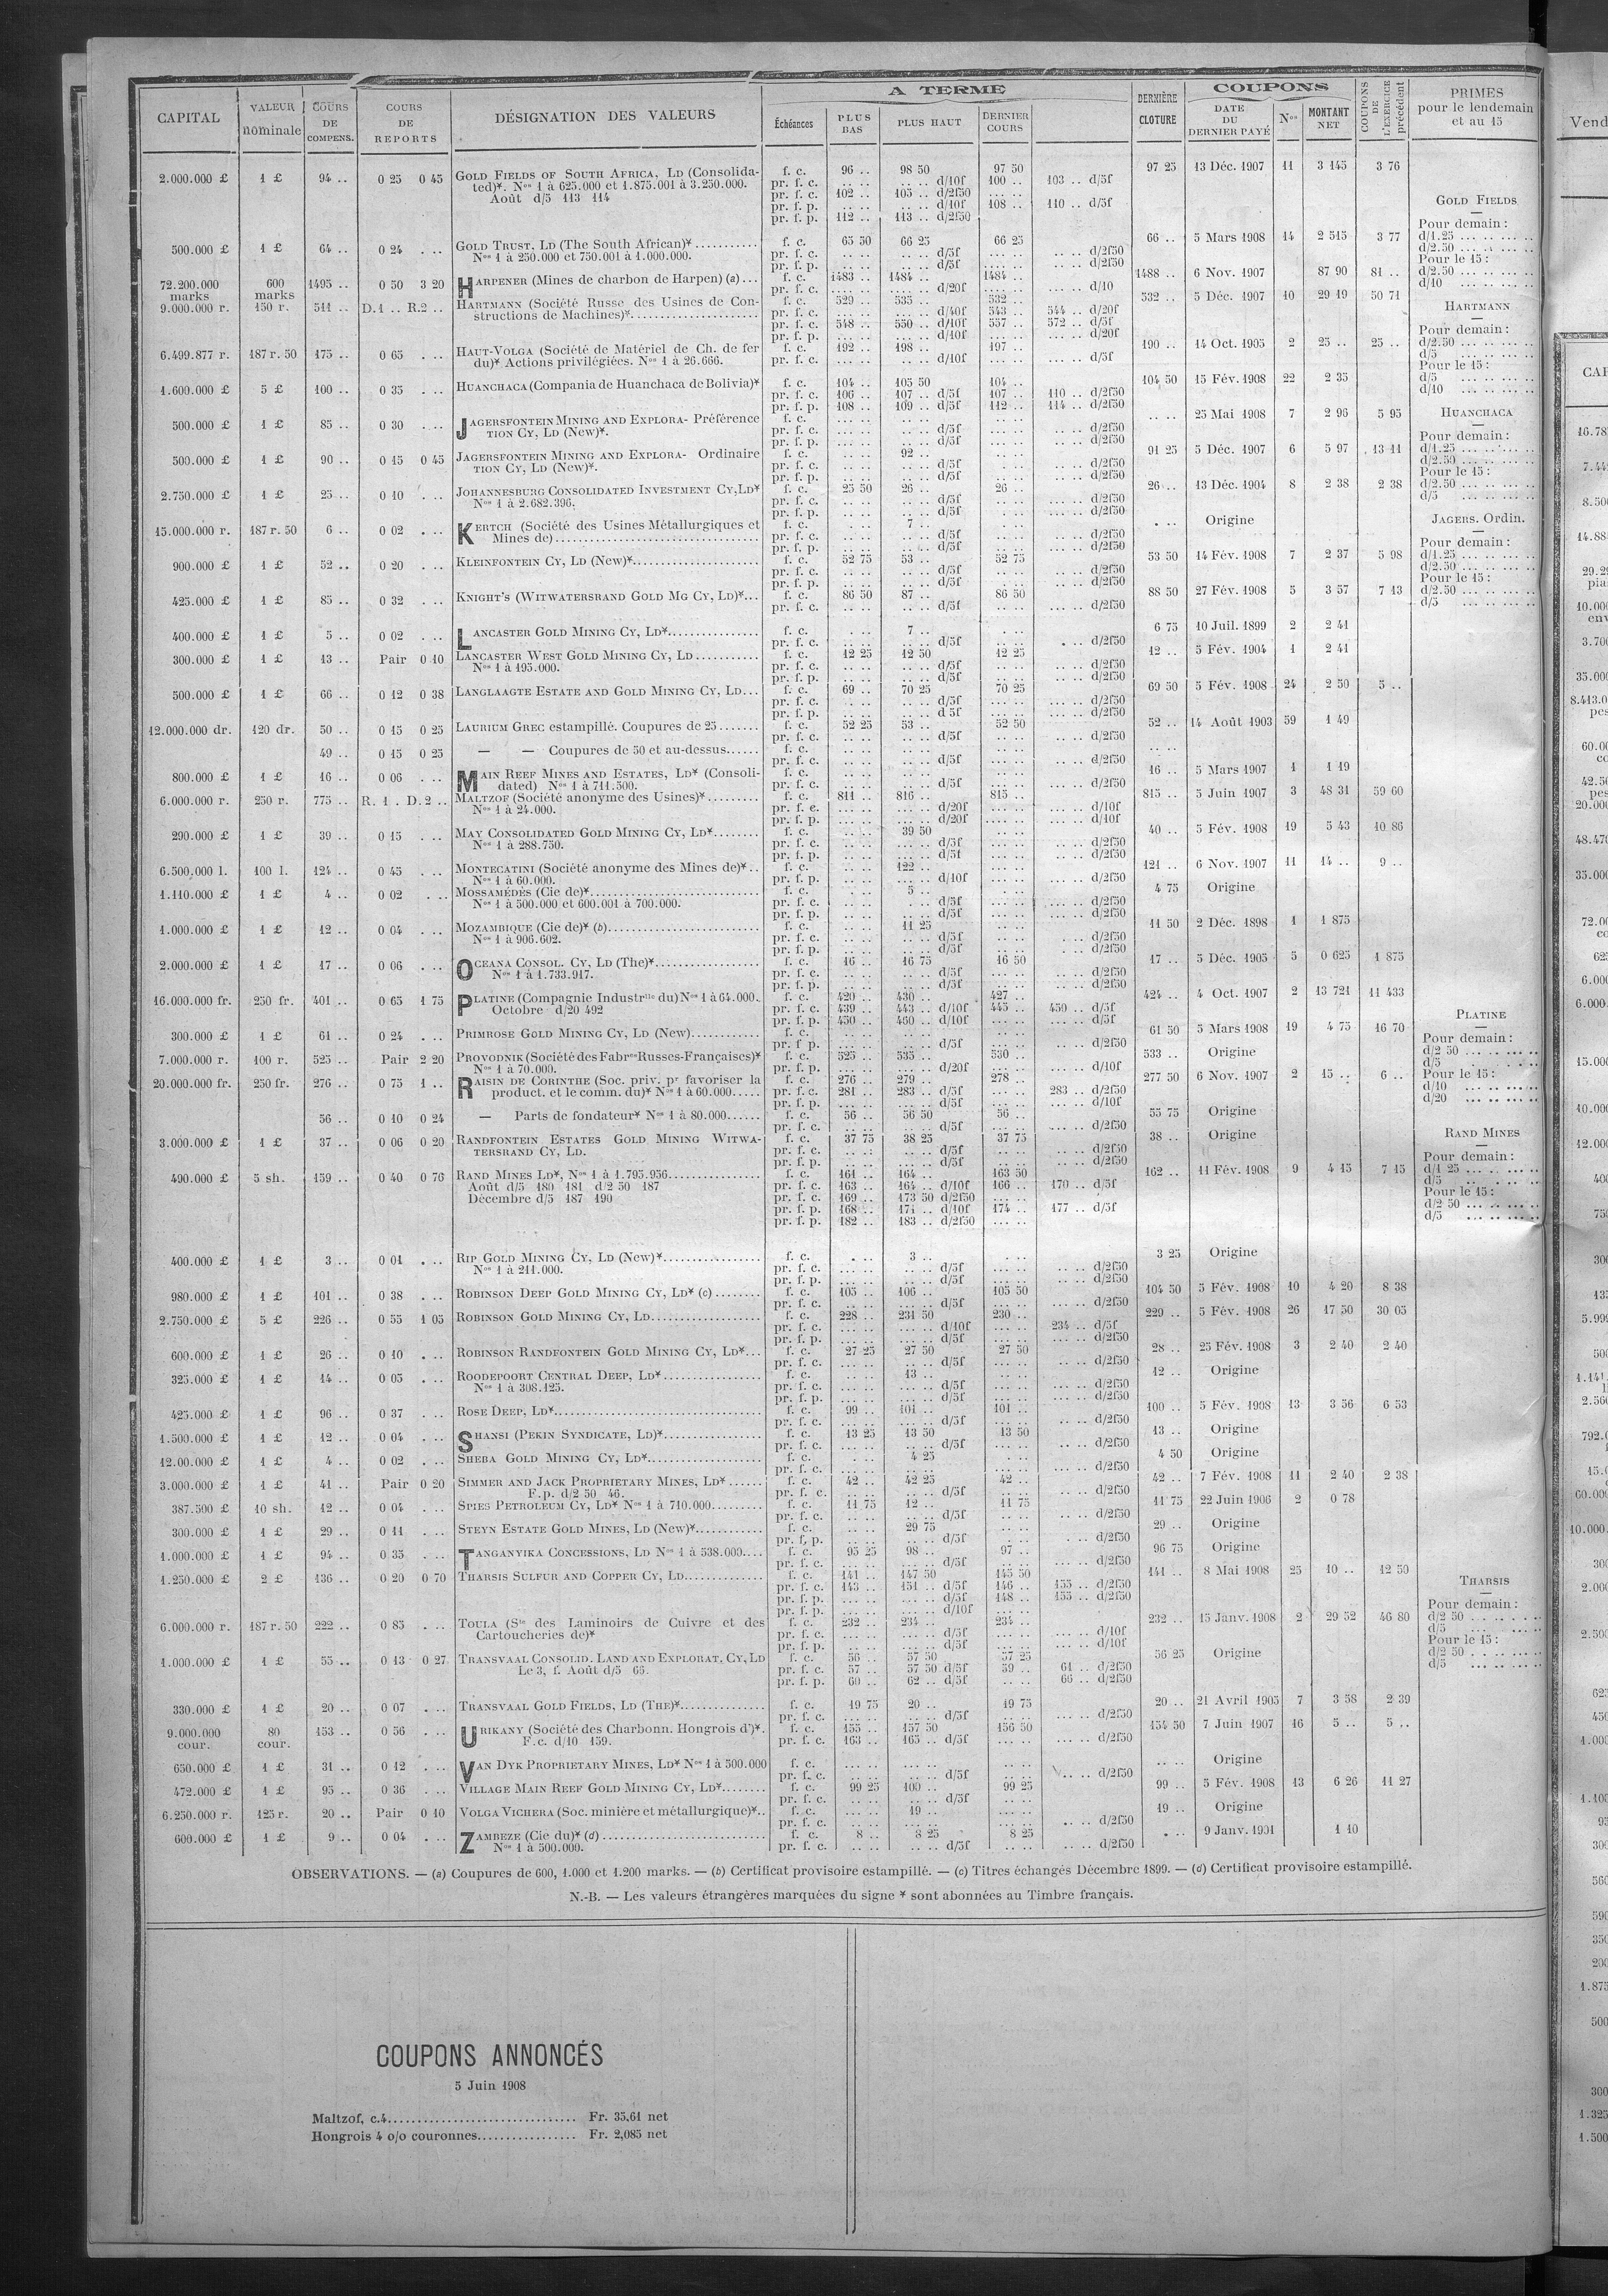 CAPITAL | VALEUR nominale | COURS DE COMPENS. | COURS DE REPORTS | DÉSIGNATION DES VALEURS | A TERME | DERNIÈRE CLOTURE | COUPONS | COUPONS DE L'EXERCICE précédent | PRIMES pour le lendemain et au 15
Échéances | PLUS BAS | PLUS HAUT | DERNIER COURS | DATE DU DERNIER PAYÉ | Nos | MONTANT NET
2.000.000 £ 1 £ 94 .. 0 25 0 45 GOLD FIELDS OF SOUTH AFRICA, LD (Consolida- f. c. 96 .. 98 50 97 50 97 25 13 Déc. 1907 11 3 145 3 76
ted)*. Nos 1 à 625.000 et 1.875.001 à 3.250.000. pr. f. c. .. .. .. .. d/10f 100 .. 103 .. d/5f
Août d/5 113 114 pr. f. c. 102 .. 105 .. d/2f50 ... ..
pr. f. p. .. .. .. .. d/10f 108 .. 110 .. d/5f GOLD FIELDS
pr. f. p. 112 .. 113 .. d/2f50
Pour demain :
500.000 £ 1 £ 64 .. 0 24 . .. GOLD TRUST, LD (The South African)* f. c. 65 50 66 25 66 25 66 .. 5 Mars 1908 14 2 515 3 77 d/1.25 ... .. ... ..
Nos 1 à 250.000 et 750.001 à 1.000.000. pr. f. c. .. .. .. .. d/5f .. .. d/2f50 d/2.50 ... .. ... ..
pr. f. p. .. .. .. .. d/5f .. .. d/2f50 Pour le 15 :
72.200.000 marks 600 marks 1495 .. 0 50 3 20 HARPENER (Mines de charbon de Harpen) (a)... f. c. 1483 .. 1484 .. 1484 .. 1488 .. 6 Nov. 1907 87 90 81 .. d/2.50 ... .. ... ..
pr. f. c. ... .. ... .. d/20f ... .. d/10 d/10 ... .. ... ..
9.000.000 r. 150 r. 511 .. D.1 .. R.2 .. HARTMANN (Société Russe des Usines de Con- f. c. 529 .. 535 .. 532 .. 532 .. 5 Déc. 1907 10 29 19 50 71
structions de Machines)* pr. f. c. ... .. ... .. d/40f 543 .. 544 .. d/20f HARTMANN
pr. f. c. 548 .. 550 .. d/10f 557 .. 572 .. d/5f
pr. f. p. ... .. ... .. d/10f ... .. .. .. d/20f Pour demain :
6.499.877 r. 187 r. 50 175 .. 0 65 . .. HAUT-VOLGA (Société de Matériel de Ch. de fer f. c. 192 .. 198 .. 197 .. 190 .. 14 Oct. 1905 2 25 .. 25 .. d/2.50 ... .. ... ..
du)* Actions privilégiées. Nos 1 à 26.666. pr. f. c. ... .. ... .. d/10f .. .. d/5f d/5 ... .. ... ..
Pour le 15 :
1.600.000 £ 5 £ 100 .. 0 35 . .. HUANCHACA (Compania de Huanchaca de Bolivia)* f. c. 104 .. 105 50 104 .. 104 50 15 Fév. 1908 22 2 35 d/5 ... .. ... ..
pr. f. c. 106 .. 107 .. d/5f 107 .. 110 .. d/2f50 d/10 ... .. ... ..
pr. f. p. 108 .. 109 .. d/5f 112 .. 114 .. d/2f50
500.000 £ 1 £ 85 .. 0 30 . .. JAGERSFONTEIN MINING AND EXPLORA- Préférence f. c. .. .. .. .. .. .. 25 Mai 1908 7 2 96 5 95 HUANCHACA
TION CY, LD (New)*. pr. f. c. .. .. .. .. d/5f .. .. d/2f50
pr. f. p. .. .. .. .. d/5f .. .. d/2f50 Pour demain :
500.000 £ 1 £ 90 .. 0 15 0 45 JAGERSFONTEIN MINING AND EXPLORA- Ordinaire f. c. .. .. 92 .. .. .. 91 25 5 Déc. 1907 6 5 97 13 11 d/1.25 ... .. ... ..
TION CY, LD (New)*. pr. f. c. .. .. .. .. d/5f .. .. d/2f50 d/2.50 ... .. ... ..
pr. f. p. .. .. .. .. d/5f .. .. d/2f50 Pour le 15 :
2.750.000 £ 1 £ 25 .. 0 10 . .. JOHANNESBURG CONSOLIDATED INVESTMENT CY, LD* f. c. 25 50 26 .. 26 .. 26 .. 13 Déc. 1904 8 2 38 2 38 d/2.50 ... .. ... ..
Nos 1 à 2.682.396. pr. f. c. .. .. .. .. d/5f .. .. d/2f50 d/5 ... .. ... ..
pr. f. p. .. .. .. .. d/5f .. .. d/2f50
15.000.000 r. 187 r. 50 6 .. 0 02 . .. KERTCH (Société des Usines Métallurgiques et f. c. . .. 7 .. . .. . .. Origine JAGERS. Ordin.
Mines de) pr. f. c. .. .. .. .. d/5f .. .. d/2f50
pr. f. p. .. .. .. .. d/5f .. .. d/2f50 Pour demain :
900.000 £ 1 £ 52 .. 0 20 . .. KLEINFONTEIN CY, LD (New)* f. c. 52 75 53 .. 52 75 53 50 14 Fév. 1908 7 2 37 5 98 d/1.25 ... .. ... ..
pr. f. c. .. .. .. .. d/5f .. .. d/2f50 d/2.50 ... .. ... ..
pr. f. p. .. .. .. .. d/5f .. .. d/2f50 Pour le 15 :
425.000 £ 1 £ 85 .. 0 32 . .. KNIGHT'S (WITWATERSRAND GOLD MG CY, LD)*... f. c. 86 50 87 .. 86 50 88 50 27 Fév. 1908 5 3 57 7 13 d/2.50 ... .. ... ..
pr. f. c. .. .. .. .. d/5f .. .. d/2f50 d/5 ... .. ... ..
400.000 £ 1 £ 5 .. 0 02 . .. LANCASTER GOLD MINING CY, LD* f. c. . .. 7 .. . .. 6 75 10 Juil. 1899 2 2 41
pr. f. c. .. .. .. .. d/5f . .. d/2f50
300.000 £ 1 £ 13 .. Pair 0 10 LANCASTER WEST GOLD MINING CY, LD f. c. 12 25 12 50 12 25 12 .. 5 Fév. 1904 1 2 41
Nos 1 à 195.000. pr. f. c. .. .. .. .. d/5f .. .. d/2f50
pr. f. p. .. .. .. .. d/5f .. .. d/2f50
500.000 £ 1 £ 66 .. 0 12 0 38 LANGLAAGTE ESTATE AND GOLD MINING CY, LD... f. c. 69 .. 70 25 70 25 69 50 5 Fév. 1908 24 2 50 5 ..
pr. f. c. .. .. .. .. d/5f .. .. d/2f50
pr. f. p. .. .. .. .. d 5f .. .. d/2f50
12.000.000 dr. 120 dr. 50 .. 0 15 0 25 LAURIUM GREC estampillé. Coupures de 25 f. c. 52 25 53 .. 52 50 52 .. 14 Août 1903 59 1 49
pr. f. c. .. .. .. .. d/5f .. .. d/2f50
49 .. 0 15 0 25 — — Coupures de 50 et au-dessus f. c. .. .. .. .. .. ..
pr. f. c. .. .. .. .. d/5f .. .. d/2f50
800.000 £ 1 £ 16 .. 0 06 . .. MAIN REEF MINES AND ESTATES, LD* (Consoli- f. c. .. .. .. .. .. .. 16 .. 5 Mars 1907 1 1 19
dated) Nos 1 à 711.500. pr. f. c. .. .. .. .. d/5f .. .. d/2f50
6.000.000 r. 250 r. 775 .. R. 1 . D. 2 .. MALTZOF (Société anonyme des Usines)* f. c. 811 .. 816 .. 815 .. 815 .. 5 Juin 1907 3 48 31 59 60
Nos 1 à 24.000. pr. f. c. ... .. ... .. d/20f ... .. d/10f
pr. f. p. ... .. ... .. d/20f ... .. d/10f
290.000 £ 1 £ 39 .. 0 15 . .. MAY CONSOLIDATED GOLD MINING CY, LD* f. c. .. .. 39 50 .. .. 40 .. 5 Fév. 1908 19 5 43 10 86
Nos 1 à 288.750. pr. f. c. .. .. .. .. d/5f .. .. d/2f50
pr. f. p. .. .. .. .. d/5f .. .. d/2f50
6.500.000 l. 100 l. 124 .. 0 45 . .. MONTECATINI (Société anonyme des Mines de)*.. f. c. ... .. 122 .. ... .. 121 .. 6 Nov. 1907 11 14 .. 9 ..
Nos 1 à 60.000. pr. f. p. .. .. ... .. d/10f .. .. d/2f50
1.110.000 £ 1 £ 4 .. 0 02 . .. MOSSAMÉDÈS (Cie de)* f. c. . .. 5 .. . .. 4 75 Origine
Nos 1 à 500.000 et 600.001 à 700.000. pr. f. c. .. .. .. .. d/5f .. .. d/2f50
pr. f. p. .. .. .. .. d/5f .. .. d/2f50
1.000.000 £ 1 £ 12 .. 0 04 . .. MOZAMBIQUE (Cie de)* (b) f. c. .. .. 11 25 .. .. 11 50 2 Déc. 1898 1 1 875
Nos 1 à 906.602. pr. f. c. .. .. .. .. d/5f .. .. d/2f50
pr. f. p. .. .. .. .. d/5f .. .. d/2f50
2.000.000 £ 1 £ 17 .. 0 06 . .. OCEANA CONSOL. CY, LD (The)* f. c. 16 .. 16 75 16 50 17 .. 5 Déc. 1905 5 0 625 1 875
Nos 1 à 1.733.917. pr. f. c. .. .. .. .. d/5f .. .. d/2f50
pr. f. p. .. .. .. .. d/5f .. .. d/2f50
16.000.000 fr. 250 fr. 401 .. 0 65 1 75 PLATINE (Compagnie Industrlle du) Nos 1 à 64.000. f. c. 420 .. 430 .. 427 .. 424 .. 4 Oct. 1907 2 13 721 11 433
Octobre d/20 492 pr. f. c. 439 .. 443 .. d/10f 445 .. 450 .. d/5f
pr. f. p. 450 .. 460 .. d/10f ... .. ... .. d/5f PLATINE
300.000 £ 1 £ 61 .. 0 24 . .. PRIMROSE GOLD MINING CY, LD (New) f. c. .. .. .. .. .. .. 61 50 5 Mars 1908 19 4 75 16 70
pr. f. p. .. .. .. .. d/5f .. .. d/2f50 Pour demain :
7.000.000 r. 100 r. 525 .. Pair 2 20 PROVODNIK (Société des Fabres Russes-Françaises)* f. c. 525 .. 535 .. 530 .. 533 .. Origine d/2 50 ... .. ... ..
Nos 1 à 70.000. pr. f. p. ... .. ... .. d/20f ... .. d/10f d/5 ... .. ... ..
20.000.000 fr. 250 fr. 276 .. 0 75 1 .. RAISIN DE CORINTHE (Soc. priv. pr favoriser la f. c. 276 .. 279 .. 278 .. 277 50 6 Nov. 1907 2 15 .. 6 .. Pour le 15 :
product. et le comm. du)* Nos 1 à 60.000 pr. f. c. 281 .. 283 .. d/5f ... .. 283 .. d/2f50 d/10 ... .. ... ..
pr. f. p. ... .. ... .. d/5f ... .. d/10f d/20 ... .. ... ..
56 .. 0 10 0 24 — Parts de fondateur* Nos 1 à 80.000 f. c. 56 .. 56 50 56 .. 55 75 Origine
pr. f. c. .. .. .. .. d/5f .. .. d/2f50
3.000.000 £ 1 £ 37 .. 0 06 0 20 RANDFONTEIN ESTATES GOLD MINING WITWA- f. c. 37 75 38 25 37 75 38 .. Origine RAND MINES
TERSRAND CY, LD. pr. f. c. .. .. .. .. d/5f .. .. d/2f50
pr. f. p. .. .. .. .. d/5f .. .. d/2f50 Pour demain :
490.000 £ 5 sh. 159 .. 0 40 0 76 RAND MINES LD*, Nos 1 à 1.795.956 f. c. 161 .. 164 .. 163 50 162 .. 11 Fév. 1908 9 4 15 7 15 d/1 25 ... .. ... ..
Août d/5 180 181 d/2 50 187 pr. f. c. 163 .. 164 .. d/10f 166 .. 170 .. d/5f d/5 ... .. ... ..
Décembre d/5 187 190 pr. f. c. 169 .. 173 50 d/2f50 ... .. Pour le 15 :
pr. f. p. 168 .. 171 .. d/10f 174 .. 177 .. d/5f d/2 50 ... .. ... ..
pr. f. p. 182 .. 183 .. d/2f50 ... .. d/5 ... .. ... ..
400.000 £ 1 £ 3 .. 0 01 . .. RIP GOLD MINING CY, LD (New)* f. c. . .. 3 .. . .. 3 25 Origine
Nos 1 à 211.000. pr. f. c. .. .. .. .. d/5f .. .. d/2f50
pr. f. p. .. .. .. .. d/5f .. .. d/2f50
980.000 £ 1 £ 101 .. 0 38 . .. ROBINSON DEEP GOLD MINING CY, LD* (c) f. c. 105 .. 106 .. 105 50 104 50 5 Fév. 1908 10 4 20 8 38
pr. f. c. .. .. .. .. d/5f .. .. d/2f50
2.750.000 £ 5 £ 226 .. 0 55 1 05 ROBINSON GOLD MINING CY, LD f. c. 228 .. 231 50 230 .. 229 .. 5 Fév. 1908 26 17 50 30 05
pr. f. c. ... .. ... .. d/10f ... .. 234 .. d/5f
pr. f. p. ... .. ... .. d/5f ... .. d/2f50
600.000 £ 1 £ 26 .. 0 10 . .. ROBINSON RANDFONTEIN GOLD MINING CY, LD*... f. c. 27 25 27 50 27 50 28 .. 25 Fév. 1908 3 2 40 2 40
pr. f. c. .. .. .. .. d/5f .. .. d/2f50
325.000 £ 1 £ 14 .. 0 05 . .. ROODEPOORT CENTRAL DEEP, LD* f. c. .. .. 13 .. .. .. 12 .. Origine
Nos 1 à 308.125. pr. f. c. .. .. .. .. d/5f .. .. d/2f50
pr. f. p. .. .. .. .. d/5f .. .. d/2f50
425.000 £ 1 £ 96 .. 0 37 . .. ROSE DEEP, LD* f. c. 99 .. 101 .. 101 .. 100 .. 5 Fév. 1908 13 3 56 6 53
pr. f. c. .. .. .. .. d/5f .. .. d/2f50
1.500.000 £ 1 £ 12 .. 0 04 . .. SHANSI (PEKIN SYNDICATE, LD)* f. c. 13 25 13 50 13 50 13 .. Origine
pr. f. c. .. .. .. .. d/5f .. .. d/2f50
12.00.000 £ 1 £ 4 .. 0 02 . .. SHEBA GOLD MINING CY, LD* f. c. . .. 4 25 . .. 4 50 Origine
pr. f. c. .. .. .. .. .. .. d/2f50
3.000.000 £ 1 £ 41 .. Pair 0 20 SIMMER AND JACK PROPRIETARY MINES, LD* f. c. 42 .. 42 25 42 .. 42 .. 7 Fév. 1908 11 2 40 2 38
F. p. d/2 50 46. pr. f. c. .. .. .. .. d/5f .. .. d/2f50
387.500 £ 10 sh. 12 .. 0 04 . .. SPIES PETROLEUM CY, LD* Nos 1 à 710.000 f. c. 11 75 12 .. 11 75 11 75 22 Juin 1906 2 0 78
pr. f. c. .. .. .. .. d/5f .. .. d/2f50
300.000 £ 1 £ 29 .. 0 11 . .. STEYN ESTATE GOLD MINES, LD (New)* f. c. .. .. 29 75 .. .. 29 .. Origine
pr. f. p. .. .. .. .. d/5f .. .. d/2f50
1.000.000 £ 1 £ 94 .. 0 35 . .. TANGANYIKA CONCESSIONS, LD Nos 1 à 538.000.... f. c. 95 25 98 .. 97 .. 96 75 Origine
pr. f. c. .. .. .. .. d/5f .. .. d/2f50
1.250.000 £ 2 £ 136 .. 0 20 0 70 THARSIS SULFUR AND COPPER CY, LD f. c. 141 .. 147 50 145 50 141 .. 8 Mai 1908 25 10 .. 12 50
pr. f. c. 143 .. 151 .. d/5f 146 .. 155 .. d/2f50 THARSIS
pr. f. p. ... .. ... .. d/5f 148 .. 155 .. d/2f50
pr. f. p. ... .. ... .. d/10f ... .. Pour demain :
6.000.000 r. 187 r. 50 222 .. 0 85 . .. TOULA (Sté des Laminoirs de Cuivre et des f. c. 232 .. 234 .. 234 .. 232 .. 15 Janv. 1908 2 29 52 46 80 d/2 50 ... .. ... ..
Cartoucheries de)* pr. f. c. ... .. ... .. d/5f ... .. d/10f d/5 ... .. ... ..
pr. f. p. ... .. ... .. d/5f ... .. d/10f Pour le 15 :
1.000.000 £ 1 £ 55 .. 0 13 0 27 TRANSVAAL CONSOLID. LAND AND EXPLORAT. CY, LD f. c. 56 .. 57 50 57 25 56 25 Origine d/2 50 ... .. ... ..
Le 3, f. Août d/5 66. pr. f. c. 57 .. 57 50 d/5f 59 .. 61 .. d/2f50 d/5 ... .. ... ..
pr. f. p. 60 .. 62 .. d/5f .. .. 66 .. d/2f50
330.000 £ 1 £ 20 .. 0 07 . .. TRANSVAAL GOLD FIELDS, LD (THE)* f. c. 19 75 20 .. 19 75 20 .. 21 Avril 1905 7 3 58 2 39
pr. f. c. .. .. .. .. d/5f .. .. d/2f50
9.000.000 cour. 80 cour. 153 .. 0 56 . .. URIKANY (Société des Charbonn. Hongrois d')*. f. c. 155 .. 157 50 156 50 154 50 7 Juin 1907 16 5 .. 5 ..
F. c. d/10 159. pr. f. c. 163 .. 165 .. d/5f ... .. d/2f50
650.000 £ 1 £ 31 .. 0 12 . .. VAN DYK PROPRIETARY MINES, LD* Nos 1 à 500.000 f. c. .. .. .. .. .. .. .. .. Origine
pr. f. c. .. .. .. .. d/5f .. .. d/2f50
472.000 £ 1 £ 95 .. 0 36 . .. VILLAGE MAIN REEF GOLD MINING CY, LD* f. c. 99 25 100 .. 99 25 99 .. 5 Fév. 1908 13 6 26 11 27
pr. f. c. .. .. .. .. d/5f .. ..
6.250.000 r. 125 r. 20 .. Pair 0 10 VOLGA VICHERA (Soc. minière et métallurgique)*.. f. c. ... .. 19 .. ... .. 19 .. Origine
pr. f. c. .. .. d/2f50
600.000 £ 1 £ 9 .. 0 04 . .. ZAMBEZE (Cie du)* (d) f. c. 8 .. 8 25 8 25 . .. 9 Janv. 1901 1 10
Nos 1 à 500.000. pr. f. c. .. .. .. .. d/5f .. .. d/2f50
OBSERVATIONS. — (a) Coupures de 600, 1.000 et 1.200 marks. — (b) Certificat provisoire estampillé. — (c) Titres échangés Décembre 1899. — (d) Certificat provisoire estampillé.
N.-B. — Les valeurs étrangères marquées du signe * sont abonnées au Timbre français.
COUPONS ANNONCÉS
5 Juin 1908
Maltzof, c.4 Fr. 35,61 net
Hongrois 4 o/o couronnes Fr. 2,085 net